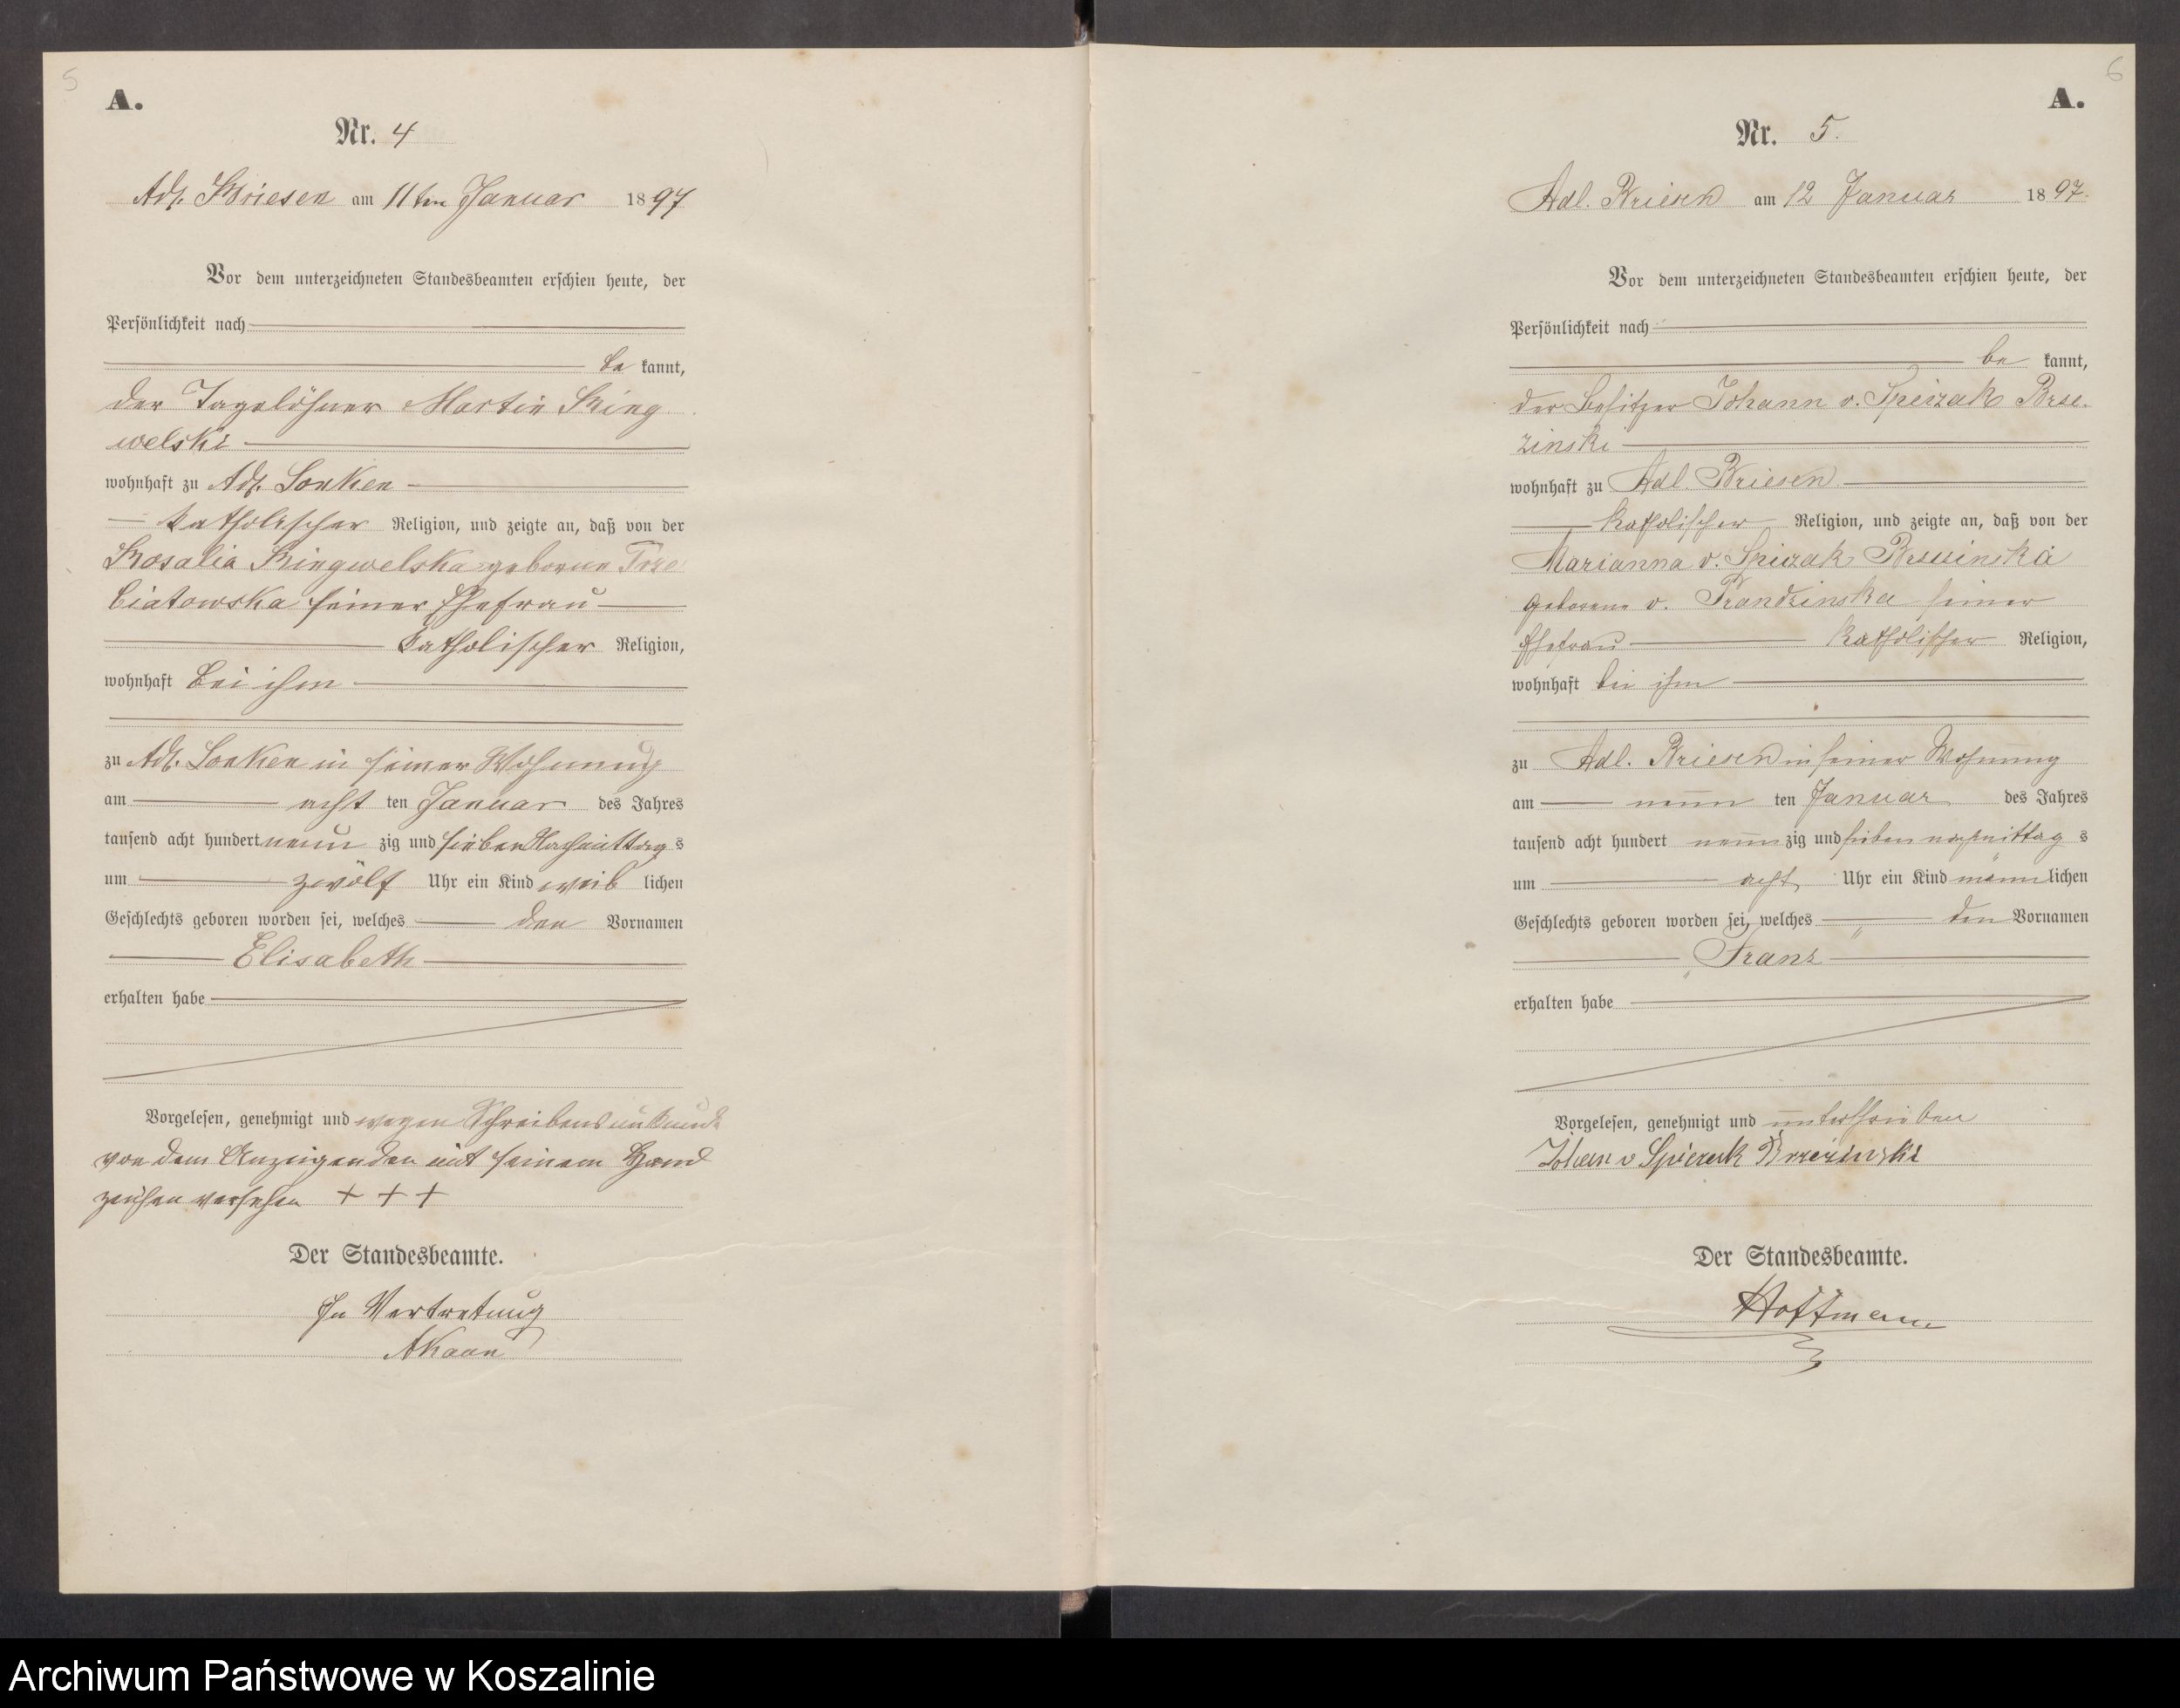 5
A.
Nr. 4
Adl. Briesen am 11ten Januar 1897
Vor dem unterzeichneten Standesbeamten erschien heute, der
Persönlichkeit nach
be kannt,
der Tagelöhner Martin Ring
welski
wohnhaft zu Adl. Lonken
katholischer Religion, und zeigte an, daß von der
Rosalia Ringwelska geborene Trze
biatowska seiner Ehefrau
katholischer Religion,
wohnhaft bei ihm
zu Adl. Lonken in seiner Wohnung
am acht ten Januar des Jahres
tausend acht hundert neun zig und sieben Nachmittag s
um zwölf Uhr ein Kind weib lichen
Geschlechts geboren worden sei, welches den Vornamen
Elisabeth
erhalten habe
Vorgelesen, genehmigt und wegen Schreibensunkunde
von dem Anzeigenden mit seinem Hand
zeichen versehen + + +
Der Standesbeamte.
In Vertretung
6
A.
Nr. 5.
Adl. Briesen am 12 Januar 1897.
Vor dem unterzeichneten Standesbeamten erschien heute, der
Persönlichkeit nach
be kannt,
der Besitzer Johann v. Spiczak Brze-
zinski
wohnhaft zu Adl. Briesen
katholischer Religion, und zeigte an, daß von der
Marianna v. Spiczak Brzezinska
geborene v. seiner
Ehefrau katholischer Religion,
wohnhaft bei ihm
zu Adl. Briesen in seiner Wohnung
am neun ten Januar des Jahres
tausend acht hundert neun zig und sieben nachmittag s
um acht Uhr ein Kind männ lichen
Geschlechts geboren worden sei, welches den Vornamen
„Franz“
erhalten habe
Vorgelesen, genehmigt und unterschrieben
Johan v Spiczak Brzezinski
Der Standesbeamte.
Hoffmann
Archiwum Państwowe w Koszalinie